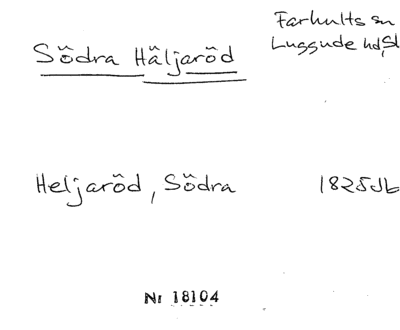 Södra Häljaröd
Farhults sn
Luggude hd, Sk
Heljaröd, Södra
1825 Jb
Nr 18104